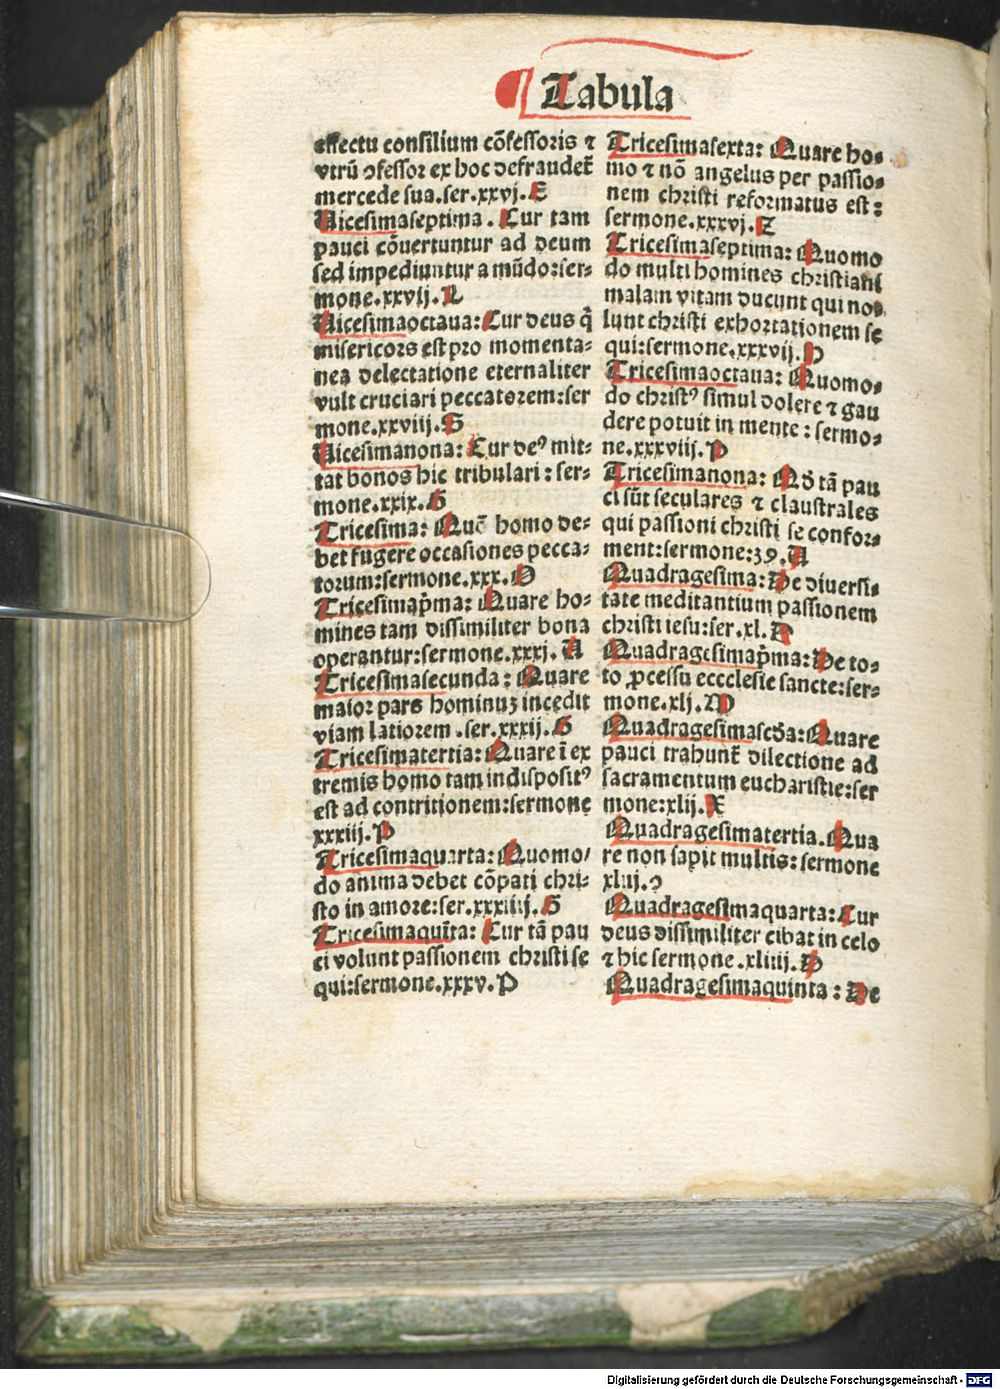 Tabula
effectu consilium cõfessoris ⁊
vtrũ ↄfessor ex hoc defraudet̃
mercede sua.ser.xxvj. E
Uicesimaseptima . Cur tam
pauci cõuertuntur ad deum
sed impediuntur a mũdo:ser⸗
mone.xxvij. L
Uicesimaoctaua: Cur deus q̃
misericors est pro momenta⸗
nea delectatione eternaliter
vult cruciari peccatorem:ser
mone.xxviij. S
Uicesimanona: Cur deꝰ mit⸗
tat bonos hic tribulari : ser⸗
mone.xxix. G
Tricesima: Quõ homo de⸗
bet fugere occasiones pecca⸗
torum:sermone.xxx. O
Tricesimap̃ma: Quare ho⸗
mines tam dissimiliter bona
operantur:sermone.xxxj. A
Tricesimasecunda: Quare
maior pars hominuꝫ incedit
viam latiorem .ser.xxxij. G
Tricesimatertia: Quare ĩ ex
tremis homo tam indispositꝰ
est ad contritionem:sermone
xxxiij. P
Tricesimaquarta: Quomo⸗
do anima debet cõpati chri⸗
sto in amore:ser.xxxiiij. G
Tricesimaquĩta: Cur tã pau
ci volunt passionem christi se
qui:sermone.xxxv. P
Tricesimasexta: Quare ho⸗
mo ⁊ nõ angelus per passio⸗
nem christi reformatus est:
sermone.xxxvj. Z
Tricesimaseptima: Quomo
do multi homines christiani
malam vitam ducunt qui no⸗
lunt christi exhortationem se
qui:sermone.xxxvij. P
Tricesimaoctaua: Quomo⸗
do christꝰ simul dolere ⁊ gau
dere potuit in mente : sermo⸗
ne.xxxviij. P
Tricesimanona: Qđ tã pau
ci sũt seculares ⁊ claustrales
qui passioni christi se confor⸗
ment:sermone:39. A
Quadragesima: De diuersi⸗
tate meditantium passionem
christi iesu:ser.xl.
Quadragesimap̃ma: De to⸗
to ꝓcessu eccclesie sancte:ser⸗
mone.xlj. M
Quadragesimascđa: Quare
pauci trahunt̃ dilectione ad
sacramentum eucharistie:ser
mone:xlij. X
Quadragesimatertia. Qua
re non sapit multis: sermone
xliij.
Quadragesimaquarta: Cur
deus dissimiliter cibat in celo
⁊ hic sermone .xliiij.
Quadragesimaquinta : De
Digitalisierung gefördert durch die Deutsche Forschungsgemeinschaft - DFG